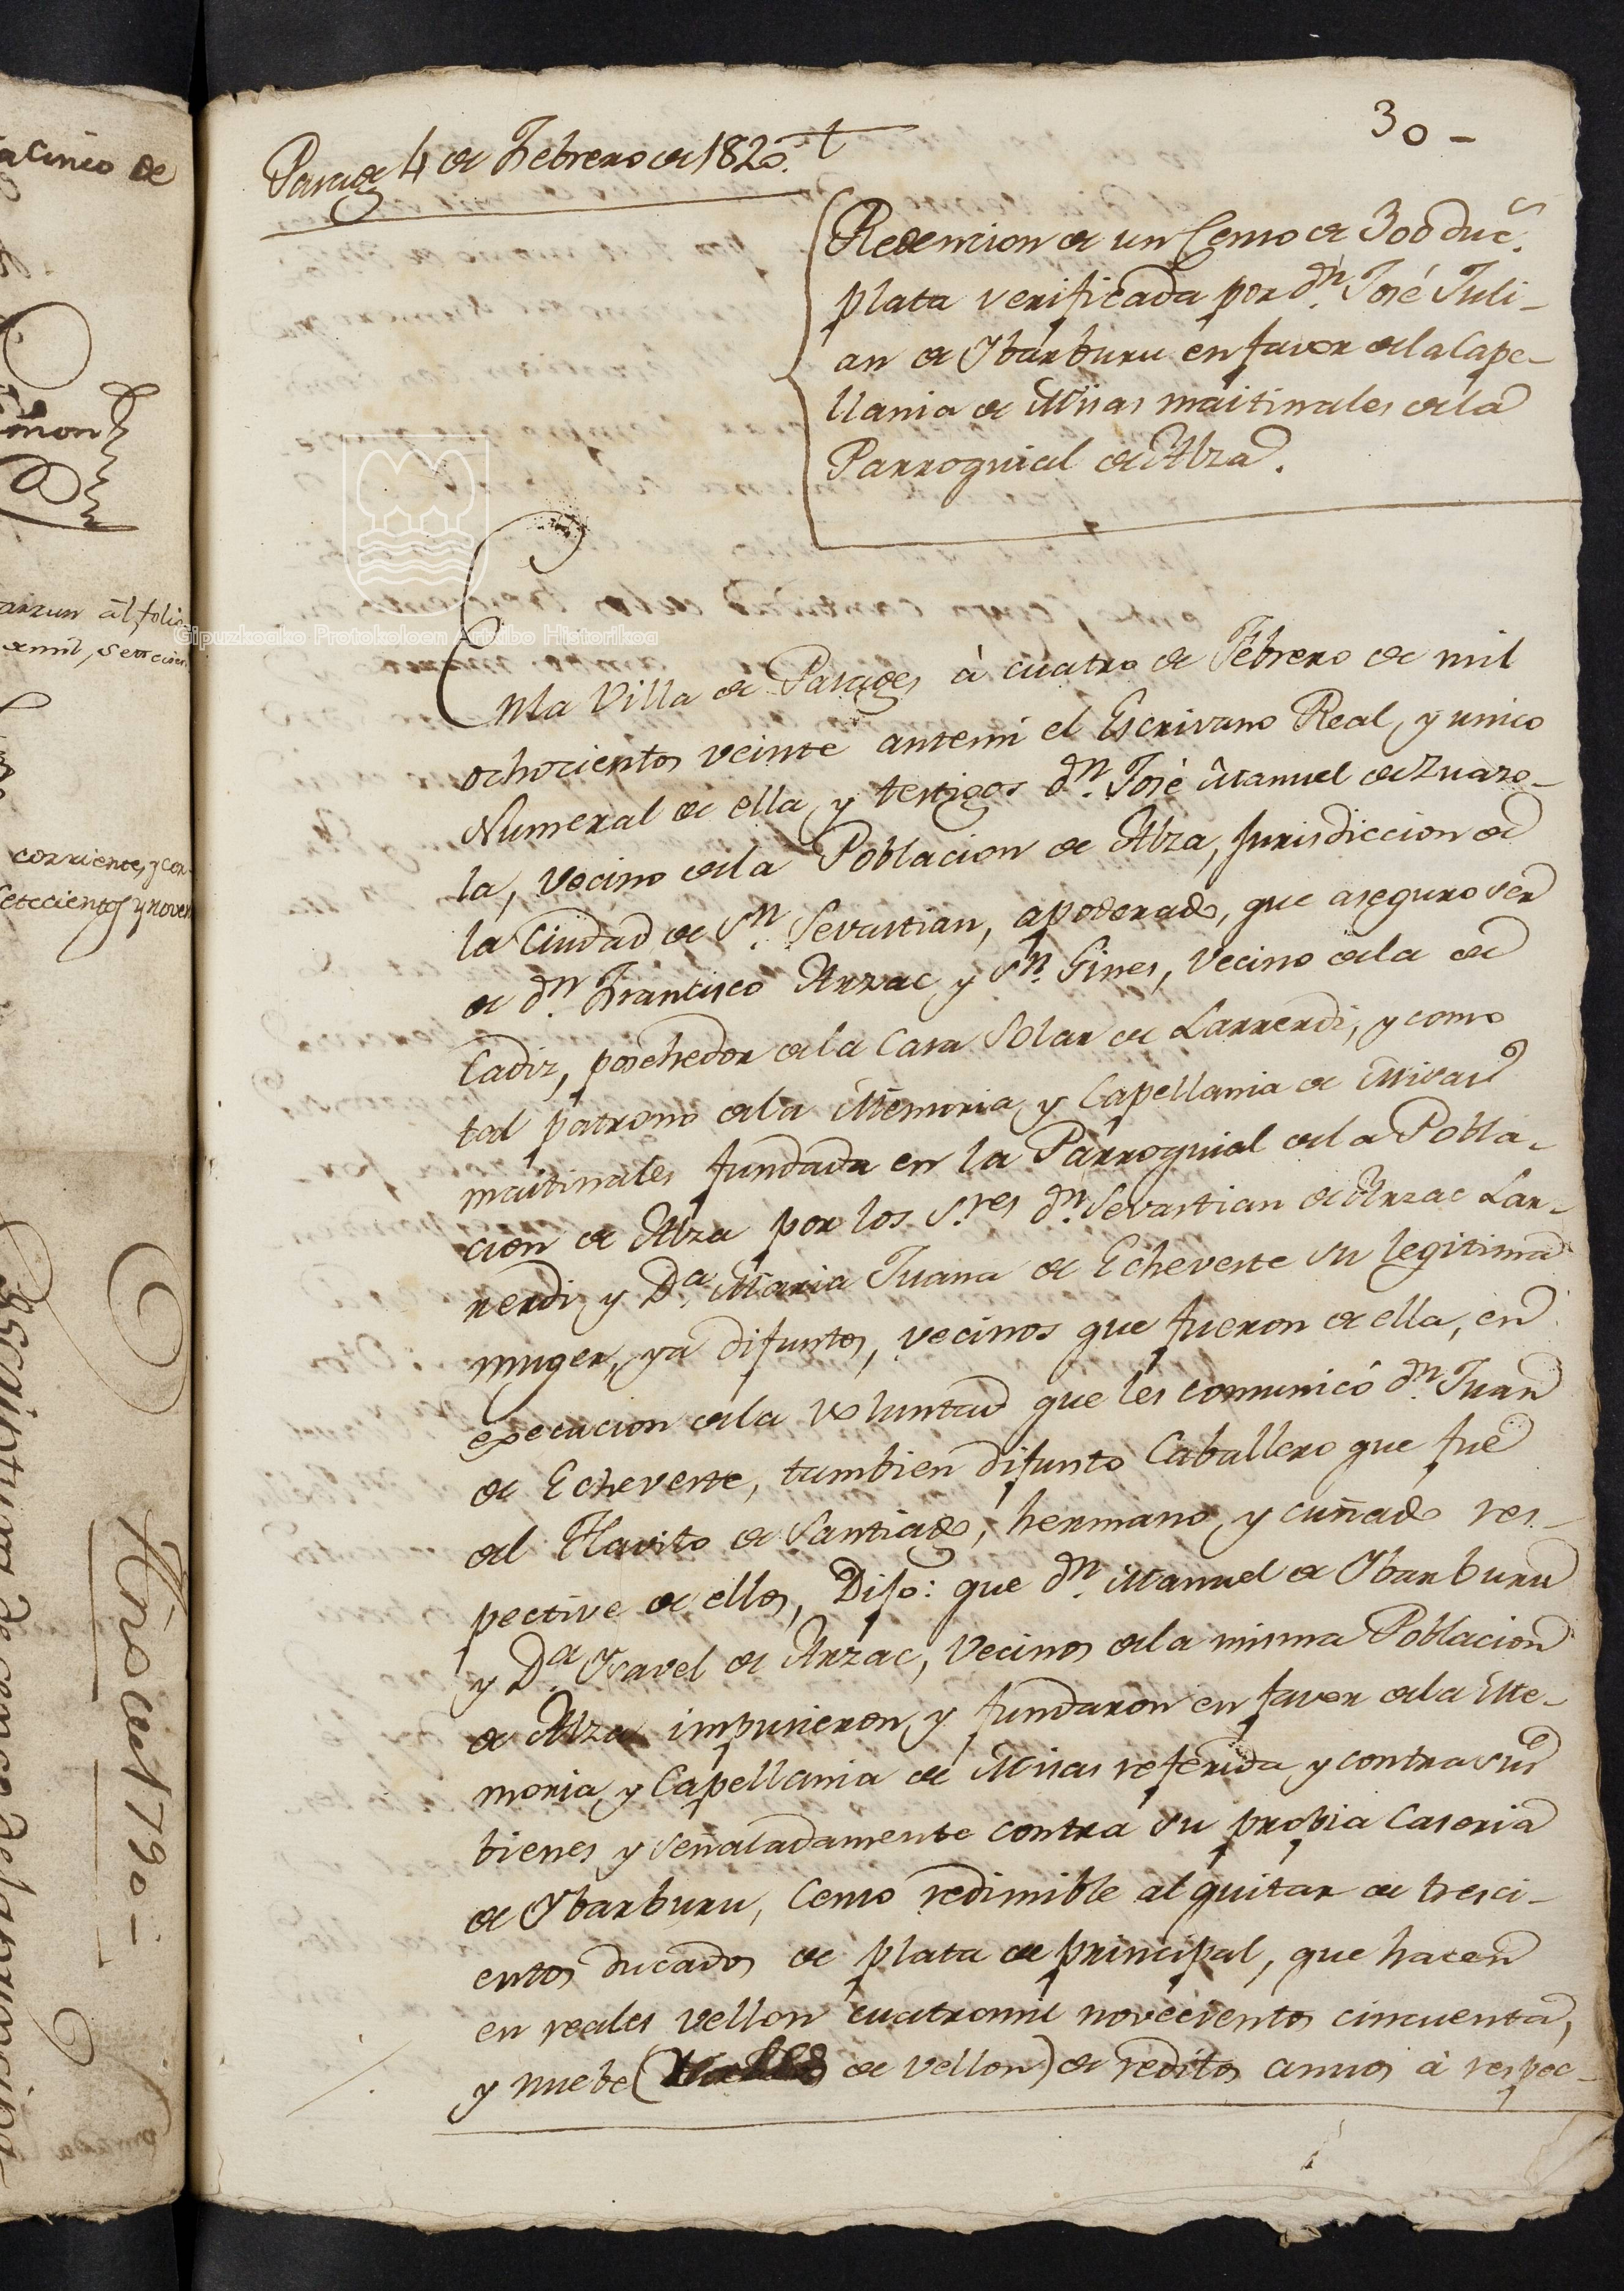 30-
Pasage 4 de Febrero de 1820.
Redencion de un Censo de 300 duc.s
plata verificada por dn. José Juli-
an de Ybarburu en favor de la Cape-
llania de Misas maitinales de la
Parroquial de Alza.
Gipuzkoako Protokoloen Artxibo Historikoa
En la Villa de Pasages à cuatro de Febrero de mil
ochocientos veinte antemi el Escrivano Real, y unico
Numeral de ella, y testigos dn. José Manuel de Zuazo-
la, vecino de la Poblacion de Alza, Jurisdiccion de
la Ciudad de Sn. Sevastian, apoderado, que aseguro ser
de dn. Francisco Arzac y Sn. Gines, vecino de la de
Cadiz, posehedor de la Casa Solar de Larrerdi, y como
tal patrono de la Memoria, y Capellania de Misas
maitinales fundada en la Parroquial de la Pobla-
cion de Alza por los S.res dn. Sevastian de Arzac Lar-
rerdi, y Da. Maria Juana de Echeveste su legitima
muger, ya difuntos, vecinos que fueron de ella, en
execucion de la voluntad que les comunicó dn. Juan
de Echeveste, tambien difunto Caballero que fue
del Havito de Santiago, hermano, y cuñado res-
pective de ellos, Dijo: que dn. Manuel de Ybarburu
y Da. Ysavel de Arzac, vecinos de la misma Poblacion
de Alza impusieron, y fundaron en favor de la Me-
moria, y Capellania de Misas referida, y contra sus
bienes y señaladamente contra su propia Caseria
de Ybarburu, Censo redimible al quitar de tresci-
entos ducados de plata de principal, que hacen
en reales vellon cuatromil novecientos cincuenta,
y nuebe ( de vellon) de reditos annuos à respec-
a cinco de
mon
arzun al folio
corriente, y con
setecientos y noven
Año del 1790-